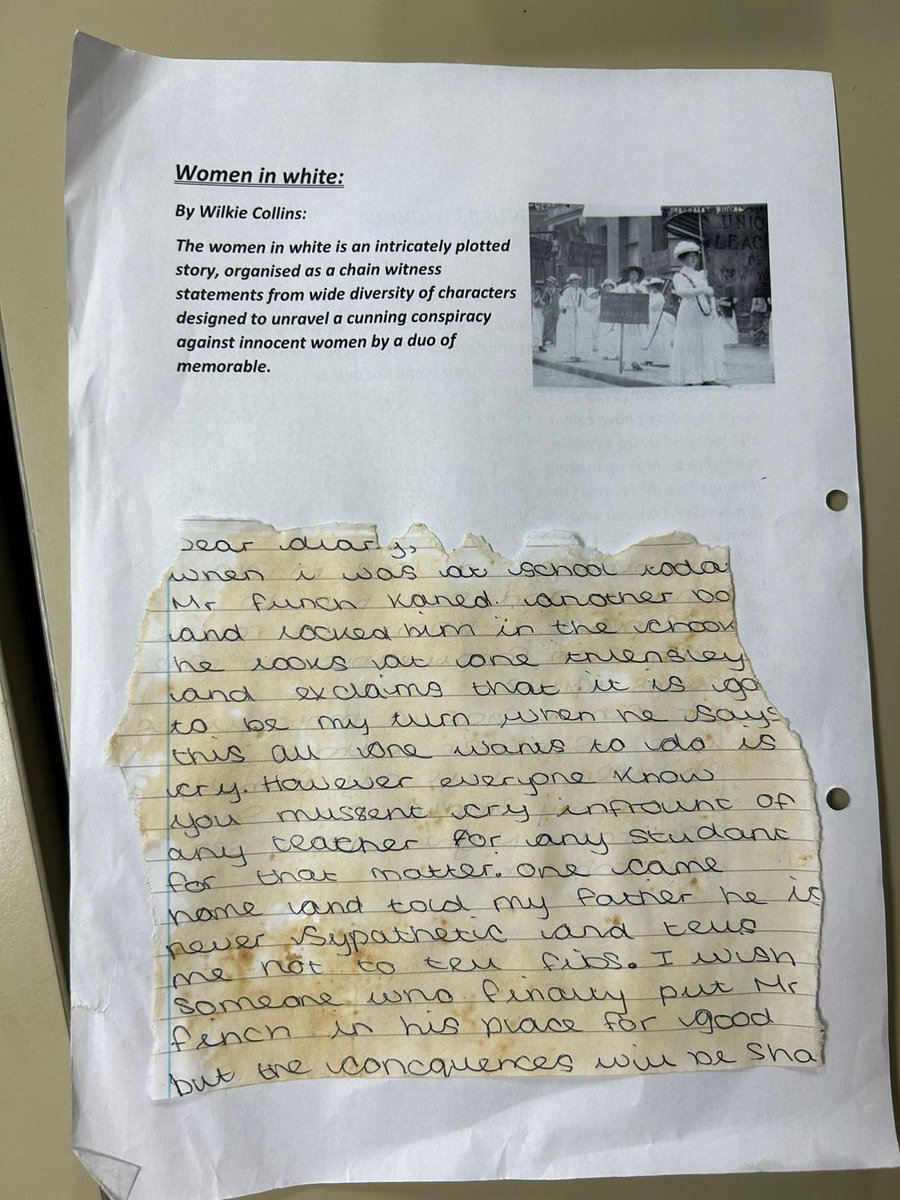 Women in white:
By Wilkie Collins:
The women in white is an intricately plotted
story, organised as a chain witness
statements from wide diversity of characters
designed to unravel a cunning conspiracy
against innocent women by a duo of
memorable.
UNIO
LEAG
Dear diary,
when i was at school toda
Mr funch kaned another bo
and locked him in the
he looks at one
and exclaims that it is go
to be my turn when he says
this all one wants to do is
cry. However everyone know
you mussent cry infrount of
any teacher for any studant
for that matter. one came
home and told my father he is
never sypathetic and tells
me not to tell fibs. I wish
someone who finally put Mr
finch in his place for good
but the concquences will be sha